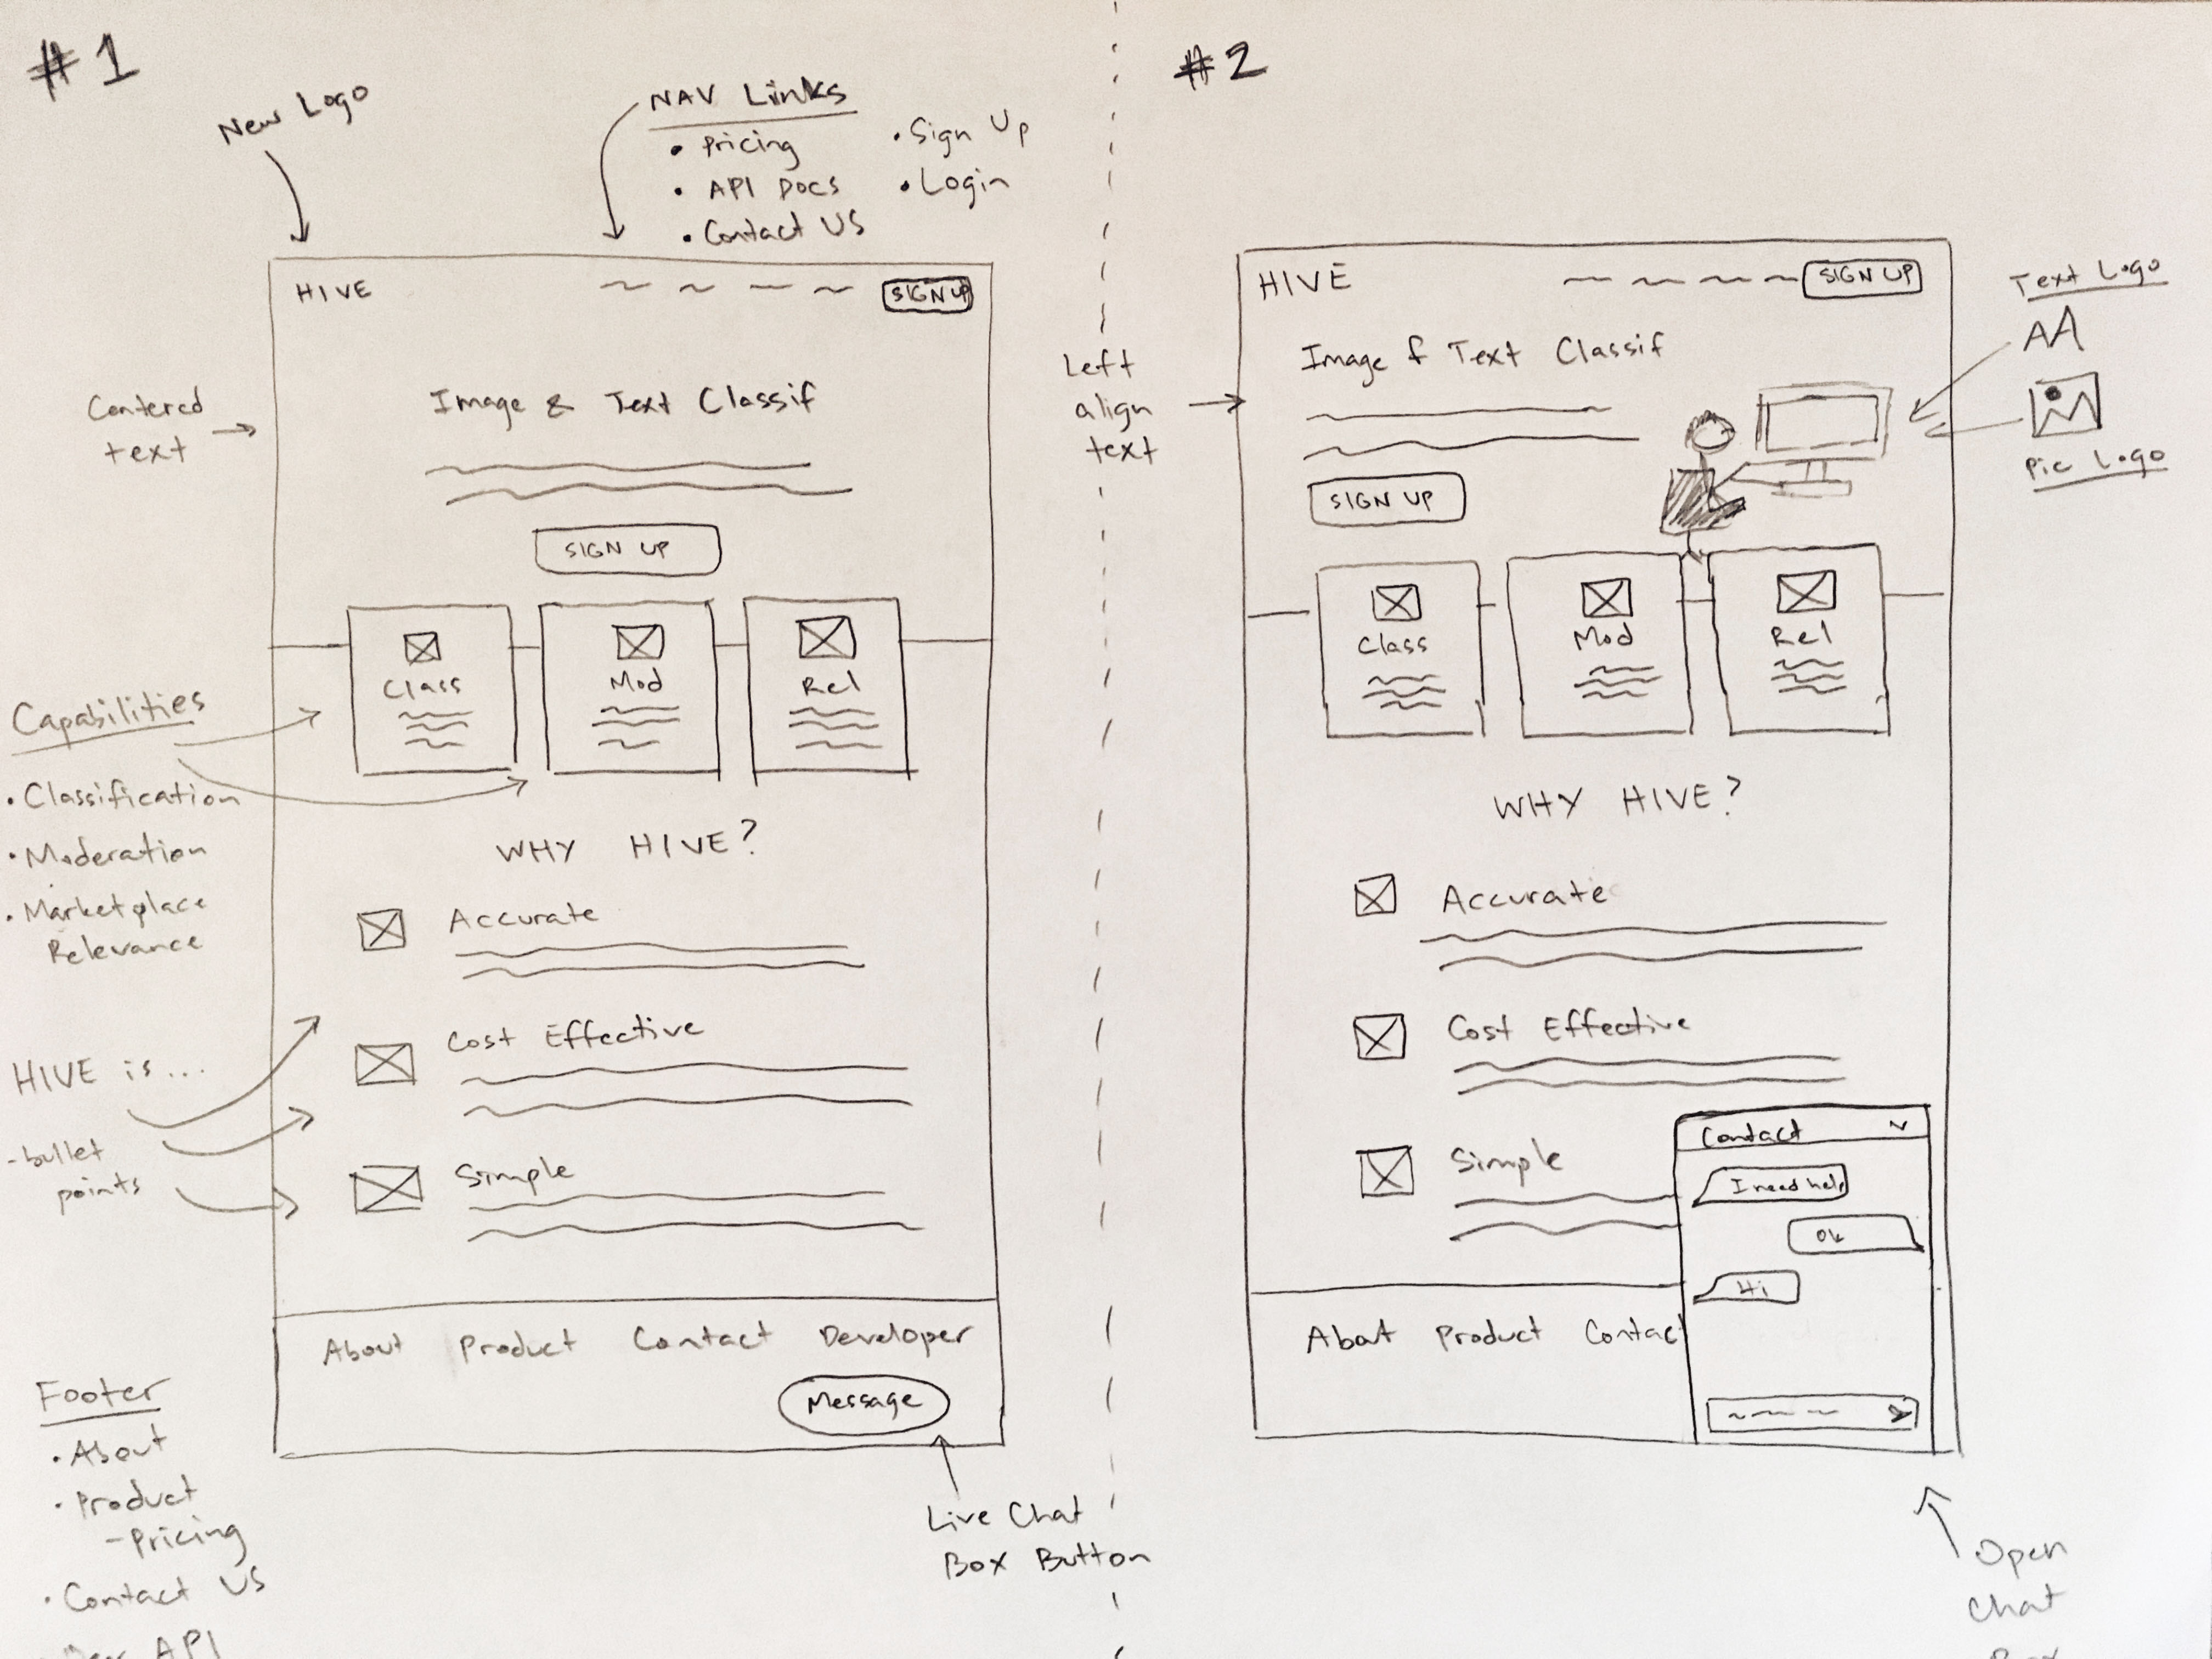 #1
New Logo
NAV Links
• Pricing
• API Docs
• Contact Us
• Sign Up
• Login
HIVE
SIGN UP
Centered
text
Image & Text Classif
SIGN UP
Class
Mod
Rel
Capabilities
• Classification
• Moderation
• Marketplace
Relevance
WHY HIVE?
Accurate
Cost Effective
Simple
HIVE is...
- bullet
points
About Product Contact Developer
Message
Live Chat
Box Button
Footer
• About
• Product
- Pricing
• Contact Us
API
#2
HIVE
SIGN UP
Text Logo
AA
Pic Logo
Left
align
text
Image & Text Classif
SIGN UP
Class
Mod
Rel
WHY HIVE?
Accurate
Cost Effective
Simple
Contact
I need help
Ok
Hi
About Product Contact
Open
Chat
Box